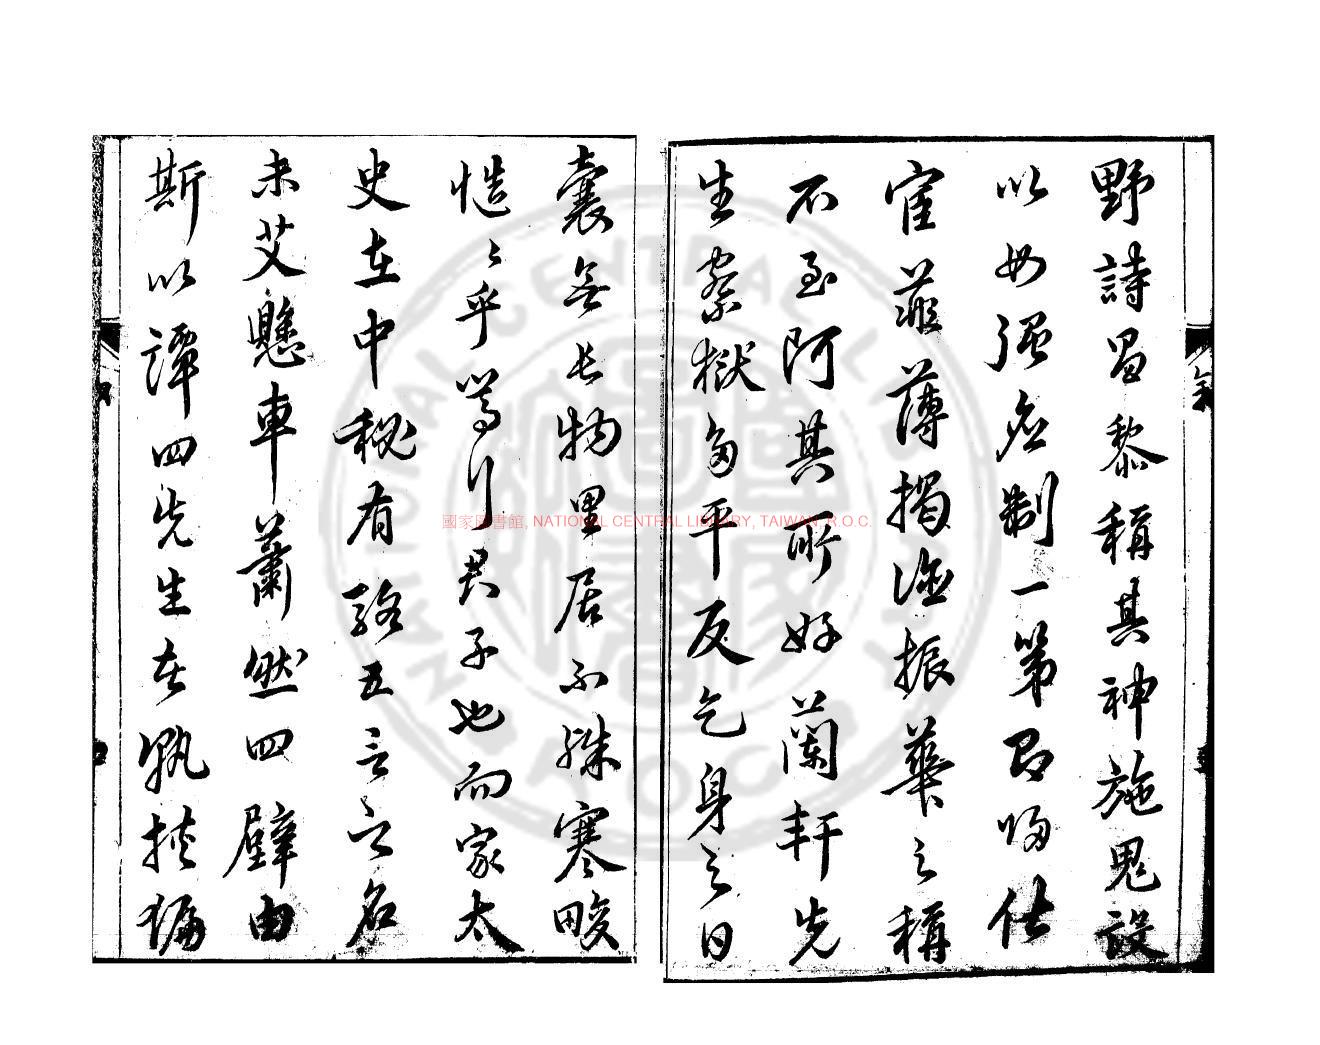 野詩曷黎稱其神施鬼設
以母強應制一第即歸仕
宦菲薄揭德振華之稱
不至阿其所好蘭軒先
生察獄多平反乞身之日
囊無長物里居不殊寒畯
慥〻乎篤行君子也而家太
史在中秘有路五言之名
未艾懸車蕭然四壁由
斯以譚四先生者孰挾
國家圖書館, NATIONAL CENTRAL LIBRARY, TAIWAN, R.O.C.